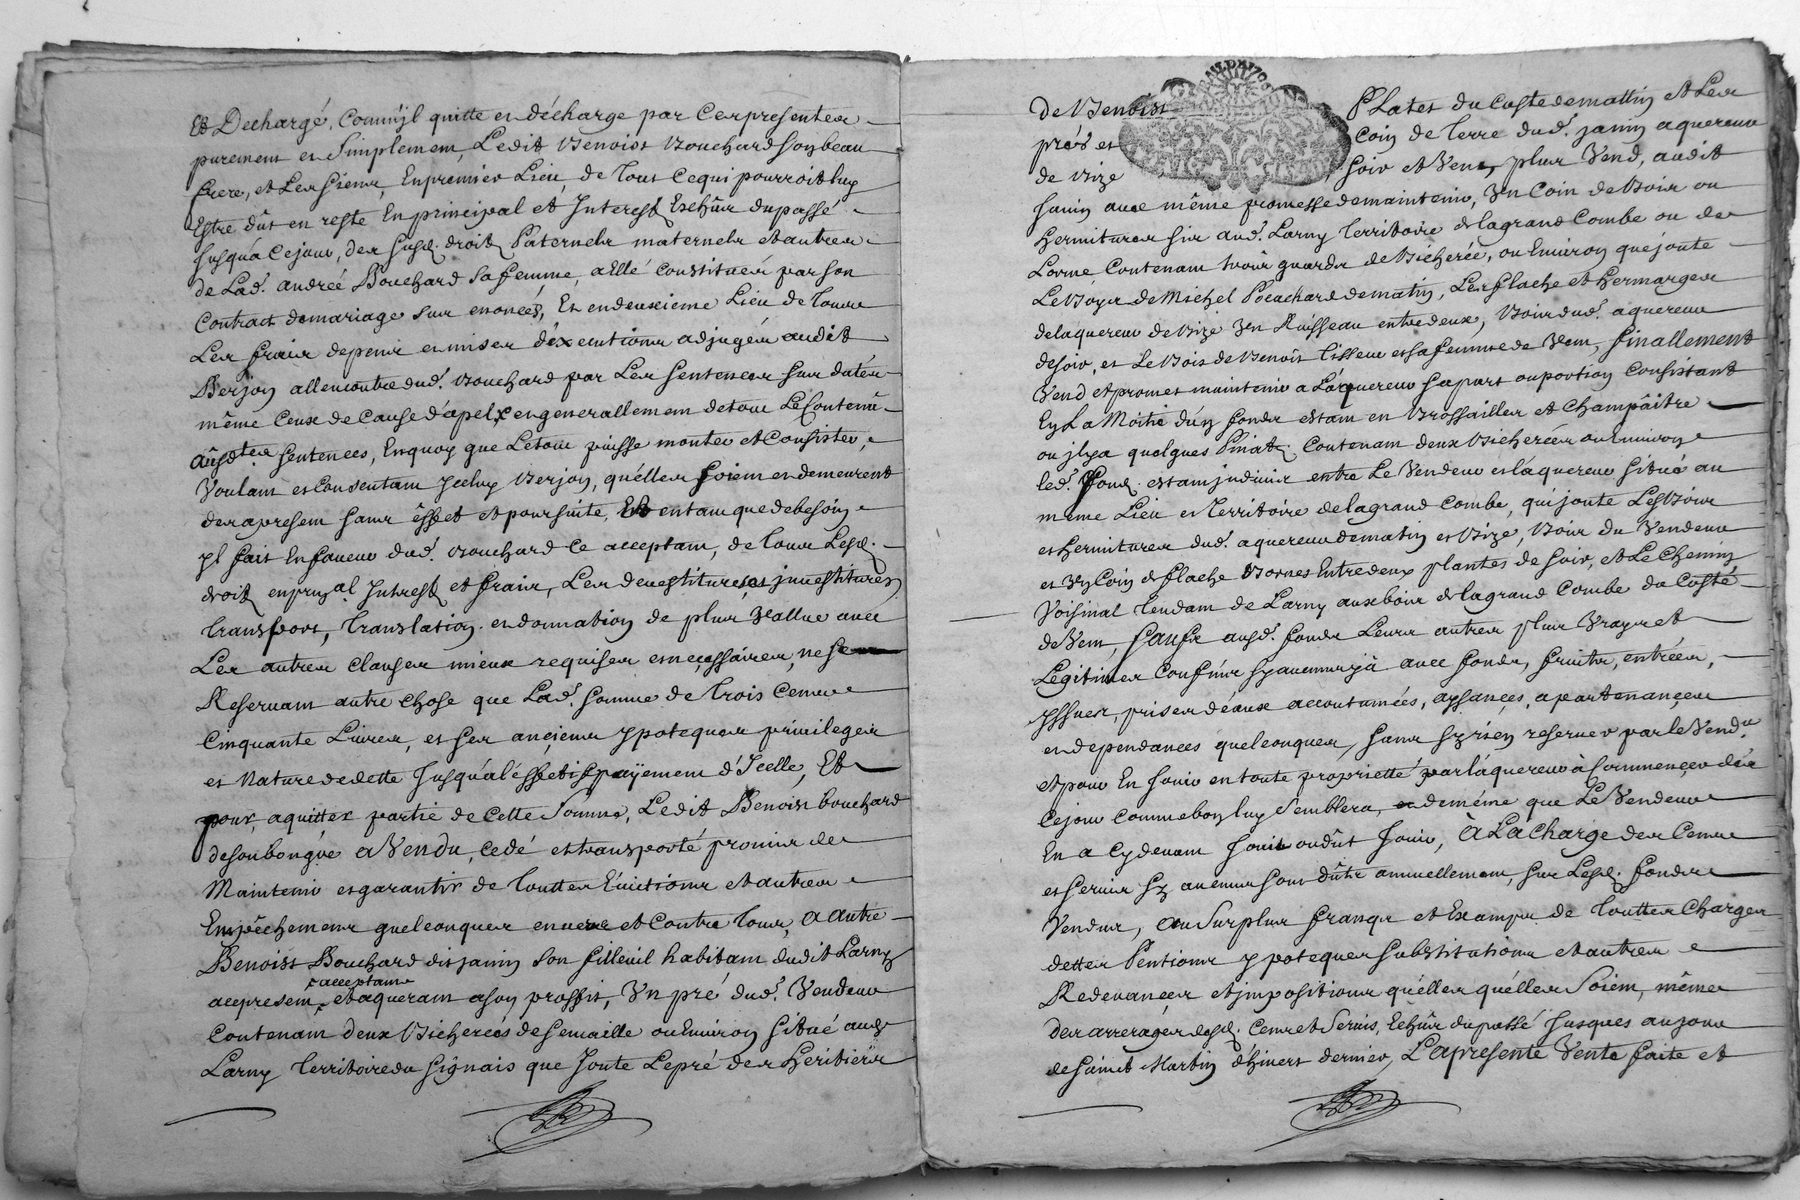 Et Dechargé, Comm'jl quitte et décharge par Ces presentes
purement et Simplement, Ledit Benoist Bouchard son beau
frere, et Les siens, En premier Lieu, de Tout Ce qui pourroit luy
Estre dût en reste En principal et Interest Eschûs du passé
Jusqu'a Ce jour, des susd. droits Paternels maternels et autres
de Lad.e andreé Bouchard sa femme, a Ellé Constitués par son
Contract de mariage sus enoncés, Et en deuxieme Lieu de Tous
Les frais depens et mises d'éxecutions adjugés audit
Berjon allencontre dud. Bouchard par Les sentences sus datées
même Ceux de Cause d'apel, et en generallement de tout Le Contenû
ausdtes sentences, En quoy que Le tout puisse monter et Consister,
Voulant et Consentant Jceluy Berjon, qu'élles soient et demeurent
des apresent sans êffet et poursuitte, Et en tant que de besoin
jl fait En faveur dud. Bouchard Ce acceptant, de Tous Lesd.
droits en prin.al Interest et frais, Les devestitures et jnvestitures
Transport, Translation et donnation de plus Vallue avec
Les autres Clauses mieux requises et neçessaires, ne se
Reservant autre Chose que Lad.e somme de Trois Cents
Cinquante Livres, et ses anciens ypoteques privileges
et Nature de dette Jusqu'à l'éffectif payement d'Icelle, Et
pour, aquitter partie de Cette Somme, Ledit Benoist bouchard
de son bon gré a Vendu, cedé et transporté promis de
Maintenir et garantir de Touttes Evictions et autres
Empêchemens quelconques envers et Contre Tous, a autre
Benoist Bouchard dit janin son filleuil habitant dudit Larny
acceptant
acy present, et aquerant a son proffit, Un pré dud. Vendeur
Contenant deux Bicherées de semaille ou Environ situé aud.
Larny Territoire du signais que Joute Le pré des Héritiers
de Benoist Plates du Costé de mattin et Les
prés et Coin de Terre dud. janin aquereur
de Bize soir et Vent, plus Vend, audit
janin avec même promesse de maintenir, Un Coin de Bois ou
Hermitures sis aud. Larny Territoire de la grand Combe ou de
Lorme Contenant trois quarts de Bicherée, ou Environ que joute
Le Bois de Michel Pocachard de matin, Les flache et Hermages
de laquereur de Bize Un Ruisseau entre deux, Bois dud. aquereur
de soir, et Le Bois de Benoit Tisseur et sa femme de Vent, finallement
Vend et promet maintenir a L'aquereur sa part ou portion Consistant
En La Moitié d'un fonds estant en Brossailles et Champâitre
ou jl y a quelques Pinats, Contenant deux Bicherées ou Environ
led. fond. estant jndivis entre Le Vendeur et l'aquereur situé au
même Lieu et Territoire de la grand Combe, qui joute Les Bois
et hermitures dud. aquereur de matin et Bize, Bois du Vendeur
et Un Coin de flache Bornes Entre deux plantes de soir, et Le Chemin
Voisinal Tendant de Larny aux bois de la grand Combe du Costé
de Vent, sauf ausd. fonds Leurs autres plus Vrays et
Legitimes Confins sy aucuns y à avec fonds, fruits, entrées,
yssues, prises déaux accoutumées, aysances, apartenances
et dependances quelconques, sans sy rien reserver par le Vend.r
et pour En jouir en toute proprietté par l'aquereur à Commencer dés
Ce jour Comme bon luy Semblera, et de même que Le Vendeur
En a Cy devant joui ou dût Jouir, à La Charge des Cens
et servis sy aucuns sont dûts annuellement, sur Lesd. fonds
Vendus, au Surplus francqs et Exampts de Touttes Charges
dettes Pentions ypoteques substitutions et autres
Redevances et jmpositions qu'élles qu'élles Soient, même
des arrerages desd. Cens et Servis, Echûs du passé Jusques au jour
de saint Martin d'hivert dernier, La presente Vente faite et